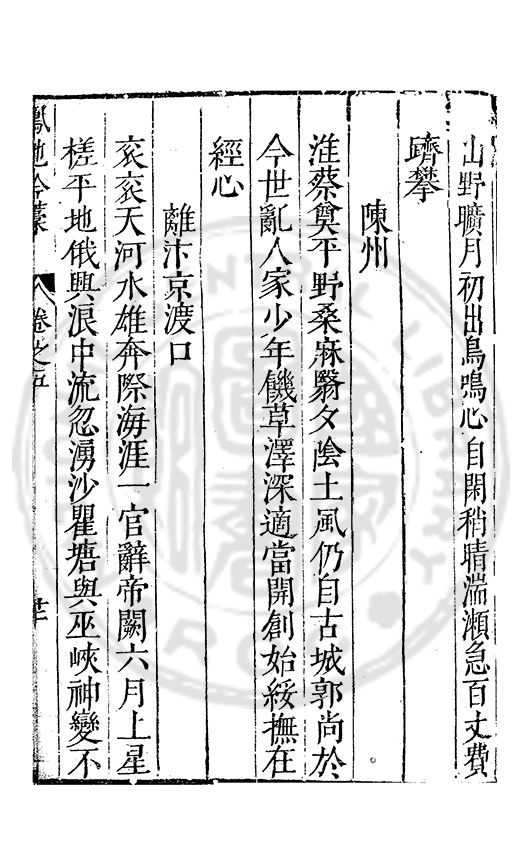 山野曠月初出鳥鳴心自閑稍晴湍瀬急百丈費
躋攀
陳州
淮蔡奠平野桑麻翳夕陰土風仍自古城郭尚於
今世亂人家少年饑草澤深適當開創始綏撫在
經心
離汴京渡口
衮衮天河水雄奔際海涯一官辭帝闕六月上星
槎平地俄興浪中流忽湧沙瞿塘與巫峽神變不
鳳池吟藁 卷之五 廿二